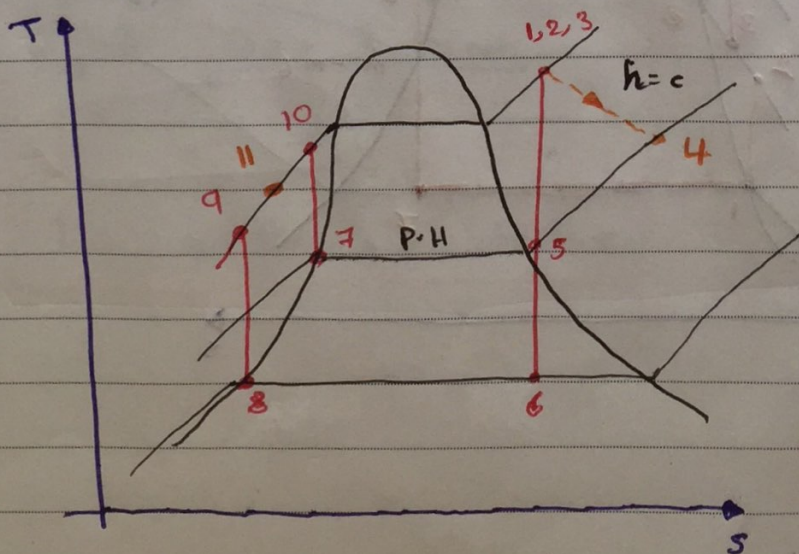 T
1, 2, 3
h = c
10
4
11
9
7
P.H
5
8
6
s